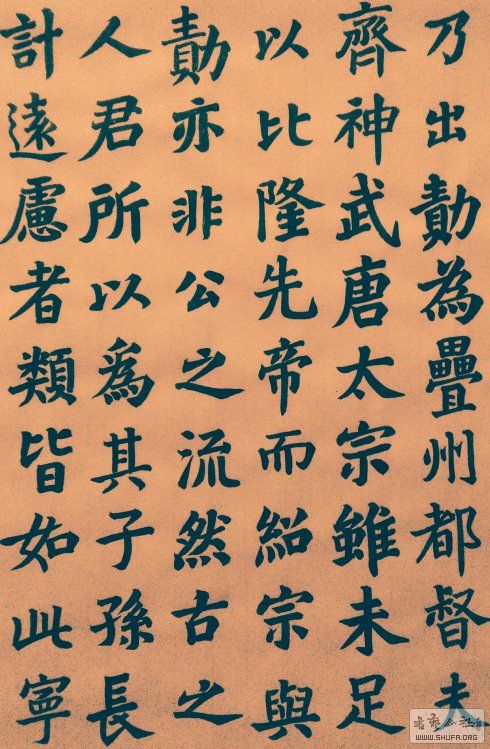 乃出勣為疊州都督夫
齊神武唐太宗雖未足
以比隆先帝而紹宗與
勣亦非公之流然古之
人君所以爲其子孫長
計遠慮者類皆如此寧
WWW.SHUFA.ORG